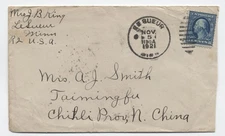 Le Sueur
Minn
U.S.A.
LE SUEUR
NOV
5
1921
MINN.
Mrs. A. J. Smith
Taimingfu
Chihli Prov. N. China